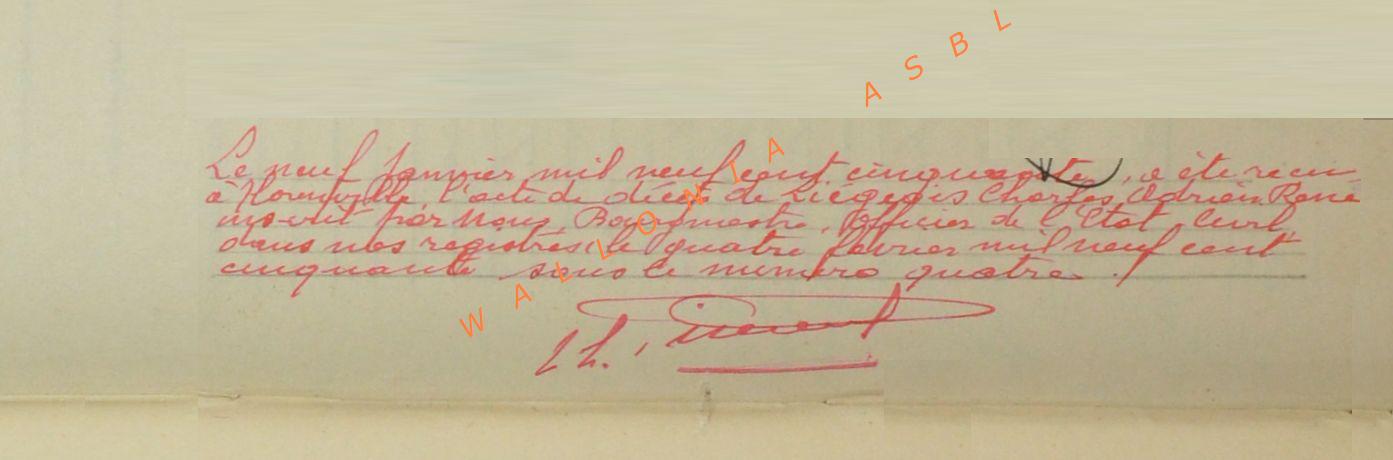 Le neuf Janvier mil neuf cent cinquante, a été reçu
à l'acte de décès de Liégeois Charles, Adrien René
inscrit par Nous, Bourgmestre, Officier de l'Etat Civil,
dans nos registres le quatre février mil neuf cent
cinquante sous le numéro quatre.
Ch.
WALLONIA ASBL